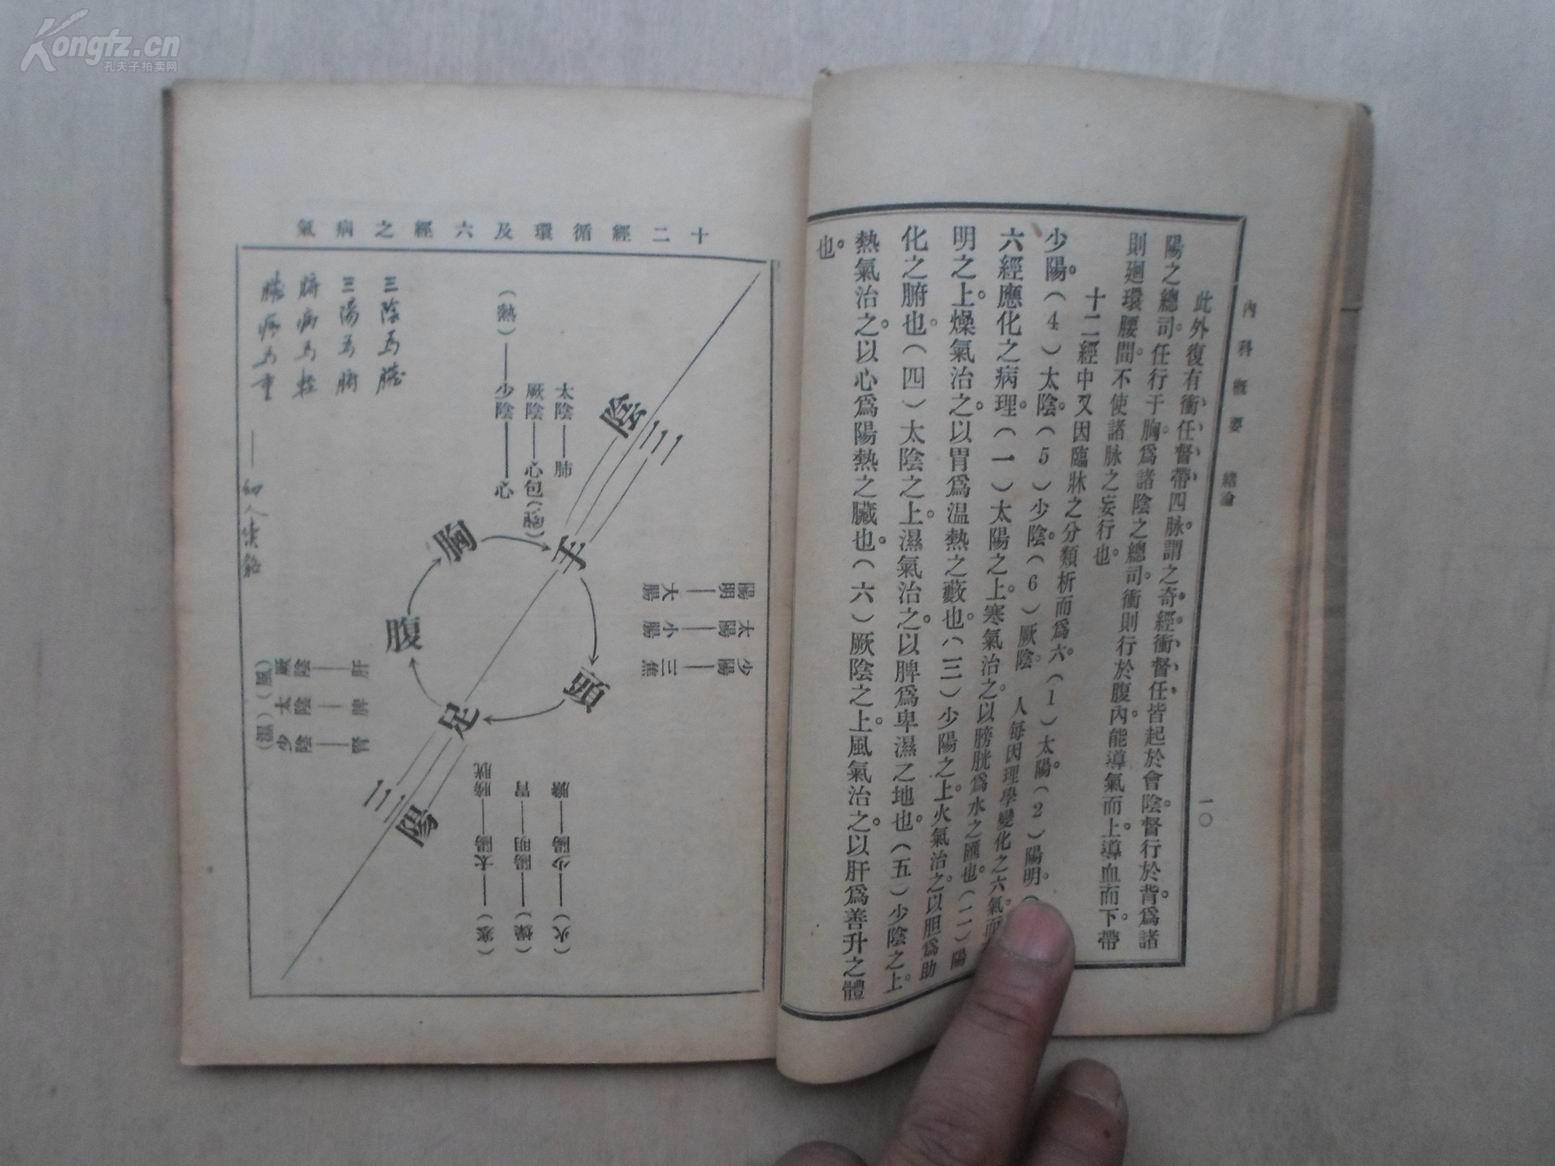 Kongfz.cn
孔夫子拍卖网
內科概要 緒論 一〇
此外復有衝任督帶四脉謂之奇經衝督任皆起於會陰督行於背爲諸
陽之總司任行于胸爲諸陰之總司衝則行於腹內能導氣而上導血而下帶
則廻環腰間不使諸脉之妄行也
十二經中又因臨牀之分類析而爲六(1)太陽(2)陽明(
少陽(4)太陰(5)少陰(6)厥陰 人每因理學變化之六氣而
六經應化之病理(一)太陽之上寒氣治之以膀胱爲水之匯也(二)陽
明之上燥氣治之以胃爲温熱之藪也(三)少陽之上火氣治之以胆爲助
化之腑也(四)太陰之上濕氣治之以脾爲卑濕之地也(五)少陰之上
熱氣治之以心爲陽熱之臟也(六)厥陰之上風氣治之以肝爲善升之體
也
十二經循環及六經之病氣
三陰為臟
三陽為腑
腑病為輕
臟病為重
陰三
手
太陰——肺
厥陰——心包(胸)
(熱)——少陰——心
陽明——大腸
太陽——小腸
少陽——三焦
胸
頭
腹
足
三陽
肝——厥陰(風)
脾——太陰
腎——少陰(濕)
(寒)——太陽——膀胱
(燥)——陽明——胃
(火)——少陽——膽